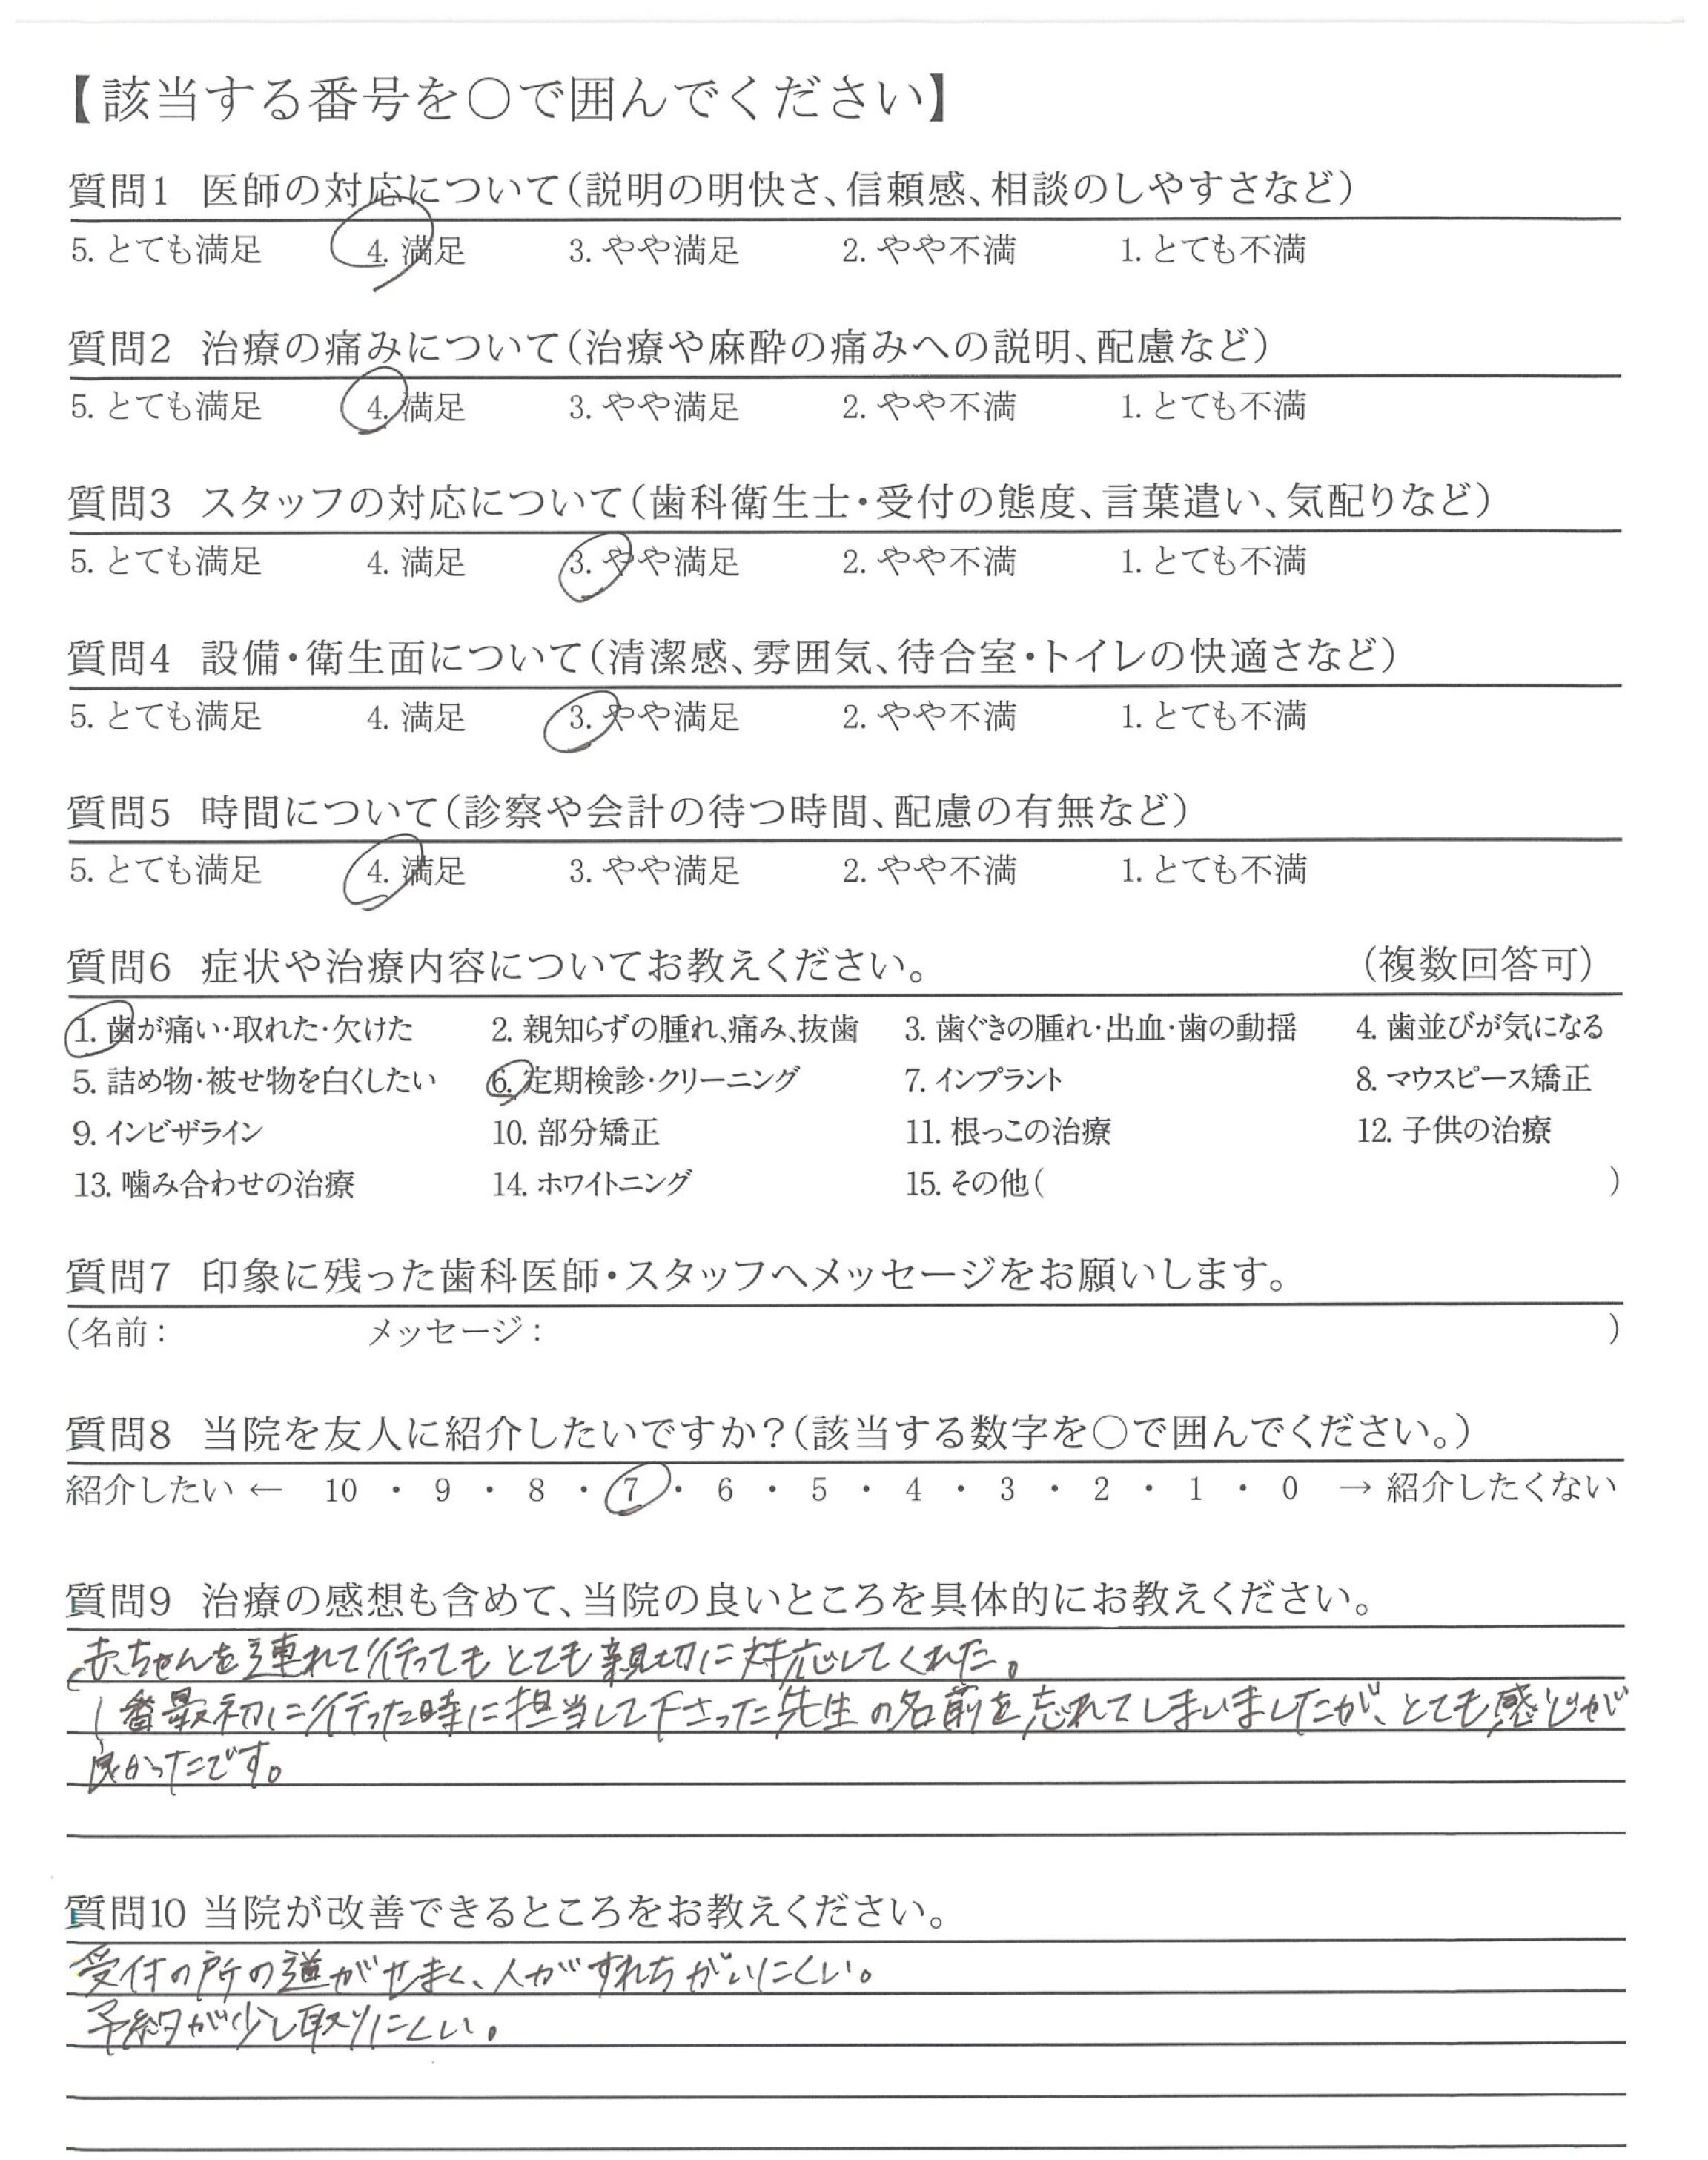 【該当する番号を○で囲んでください】
質問1 医師の対応について(説明の明快さ、信頼感、相談のしやすさなど)
5. とても満足 4. 満足 3. やや満足 2. やや不満 1. とても不満
質問2 治療の痛みについて(治療や麻酔の痛みへの説明、配慮など)
5. とても満足 4. 満足 3. やや満足 2. やや不満 1. とても不満
質問3 スタッフの対応について(歯科衛生士・受付の態度、言葉遣い、気配りなど)
5. とても満足 4. 満足 3. やや満足 2. やや不満 1. とても不満
質問4 設備・衛生面について(清潔感、雰囲気、待合室・トイレの快適さなど)
5. とても満足 4. 満足 3. やや満足 2. やや不満 1. とても不満
質問5 時間について(診察や会計の待つ時間、配慮の有無など)
5. とても満足 4. 満足 3. やや満足 2. やや不満 1. とても不満
質問6 症状や治療内容についてお教えください。 (複数回答可)
1. 歯が痛い・取れた・欠けた 2. 親知らずの腫れ、痛み、抜歯 3. 歯ぐきの腫れ・出血・歯の動揺 4. 歯並びが気になる
5. 詰め物・被せ物を白くしたい 6. 定期検診・クリーニング 7. インプラント 8. マウスピース矯正
9. インビザライン 10. 部分矯正 11. 根っこの治療 12. 子供の治療
13. 噛み合わせの治療 14. ホワイトニング 15. その他( )
質問7 印象に残った歯科医師・スタッフへメッセージをお願いします。
(名前： メッセージ： )
質問8 当院を友人に紹介したいですか？(該当する数字を○で囲んでください。)
紹介したい ← 10 ・ 9 ・ 8 ・ 7 ・ 6 ・ 5 ・ 4 ・ 3 ・ 2 ・ 1 ・ 0 → 紹介したくない
質問9 治療の感想も含めて、当院の良いところを具体的にお教えください。
赤ちゃんを連れて行ってもとても親切に対応してくれた。
1番最初に行った時に担当して下さった先生の名前を忘れてしまいましたが、とても感じが
良かったです。
質問10 当院が改善できるところをお教えください。
受付の所の道がせまく、人がすれちがいにくい。
予約が少し取りにくい。